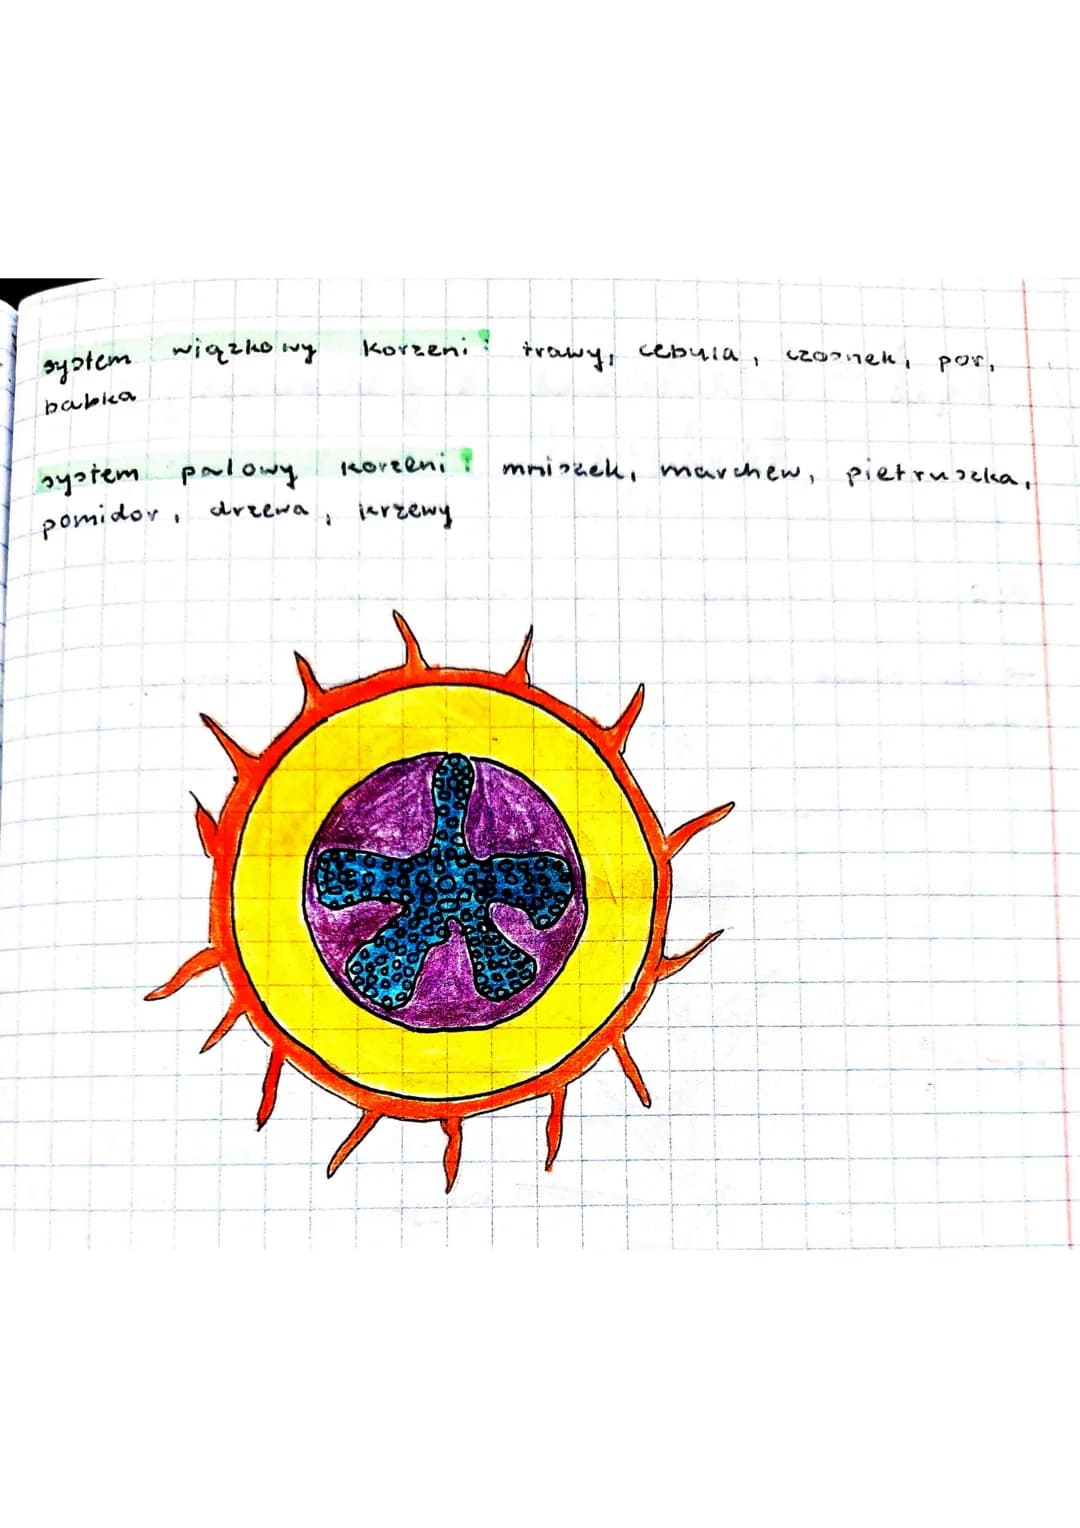 system wiązkowy korzeni: trawy, cebula, czosnek, por,
babka
system palowy korzeni: mniszek, marchew, pietruszka,
pomidor, drzewa, krzewy